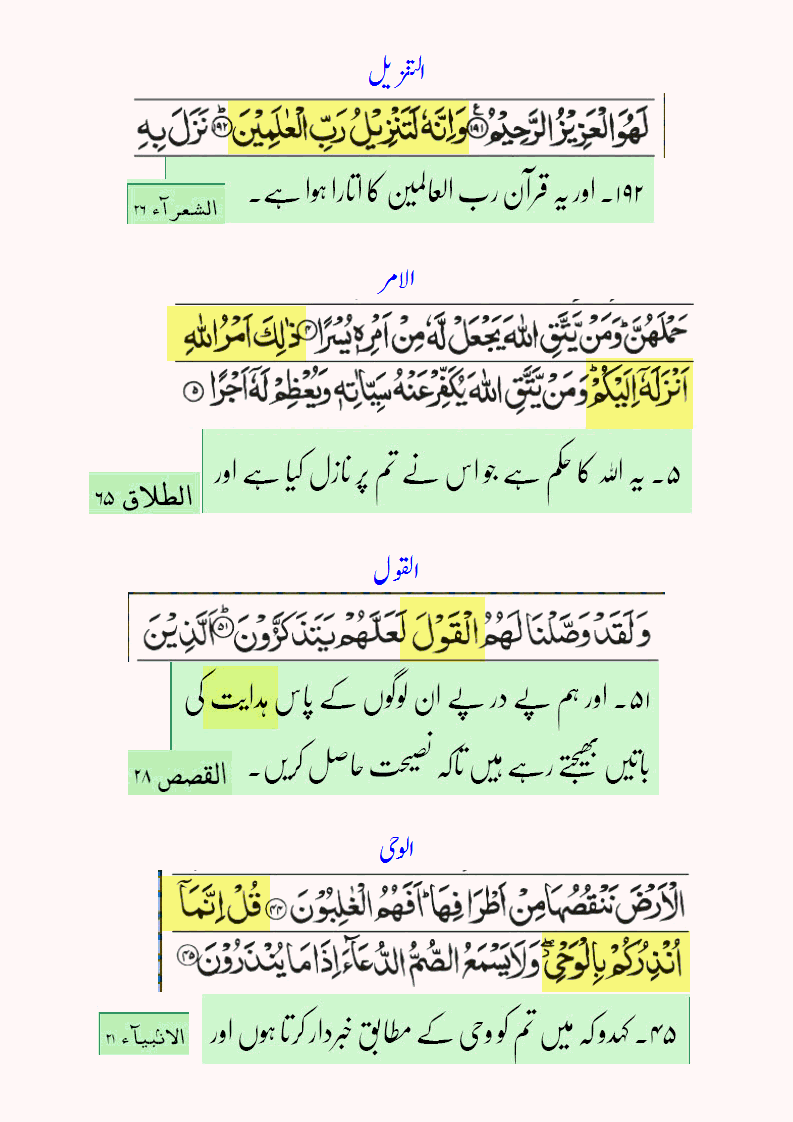 التنزیل
لَهُوَ الْعَزِيْزُ الرَّحِيْمُ ﴿۱۹۱﴾ ع وَاِنَّهٗ لَتَنْزِيْلُ رَبِّ الْعٰلَمِيْنَ ؕ﴿۱۹۲﴾ نَزَلَ بِهِ
۱۹۲۔ اور یہ قرآن رب العالمین کا اتارا ہوا ہے۔
الشعرآء ۲۶
الامر
حَمْلَهُنَّ ؕ وَمَنْ يَّتَّقِ اللّٰهَ يَجْعَلْ لَّهٗ مِنْ اَمْرِهٖ يُسْرًا ﴿۴﴾ ذٰلِكَ اَمْرُ اللّٰهِ
اَنْزَلَهٗۤ اِلَيْكُمْ ؕ وَمَنْ يَّتَّقِ اللّٰهَ يُكَفِّرْ عَنْهُ سَيِّاٰتِهٖ وَيُعْظِمْ لَهٗۤ اَجْرًا ﴿۵﴾
۵۔ یہ اللہ کا حکم ہے جو اس نے تم پر نازل کیا ہے اور
الطلاق ۶۵
القول
وَلَقَدْ وَصَّلْنَا لَهُمُ الْقَوْلَ لَعَلَّهُمْ يَتَذَكَّرُوْنَ ؕ﴿۵۱﴾ اَلَّذِيْنَ
۵۱۔ اور ہم پے در پے ان لوگوں کے پاس ہدایت کی
باتیں بھیجتے رہے ہیں تاکہ نصیحت حاصل کریں۔
القصص ۲۸
الوحی
الْاَرْضَ نَنْقُصُهَا مِنْ اَطْرَافِهَا ؕ اَفَهُمُ الْغٰلِبُوْنَ ﴿۴۴﴾ قُلْ اِنَّمَاۤ
اُنْذِرُكُمْ بِالْوَحْيِ ۖ وَلَا يَسْمَعُ الصُّمُّ الدُّعَآءَ اِذَا مَا يُنْذَرُوْنَ ﴿۴۵﴾
۴۵۔ کہدو کہ میں تم کو وحی کے مطابق خبردار کرتا ہوں اور
الانبیآء ۲۱